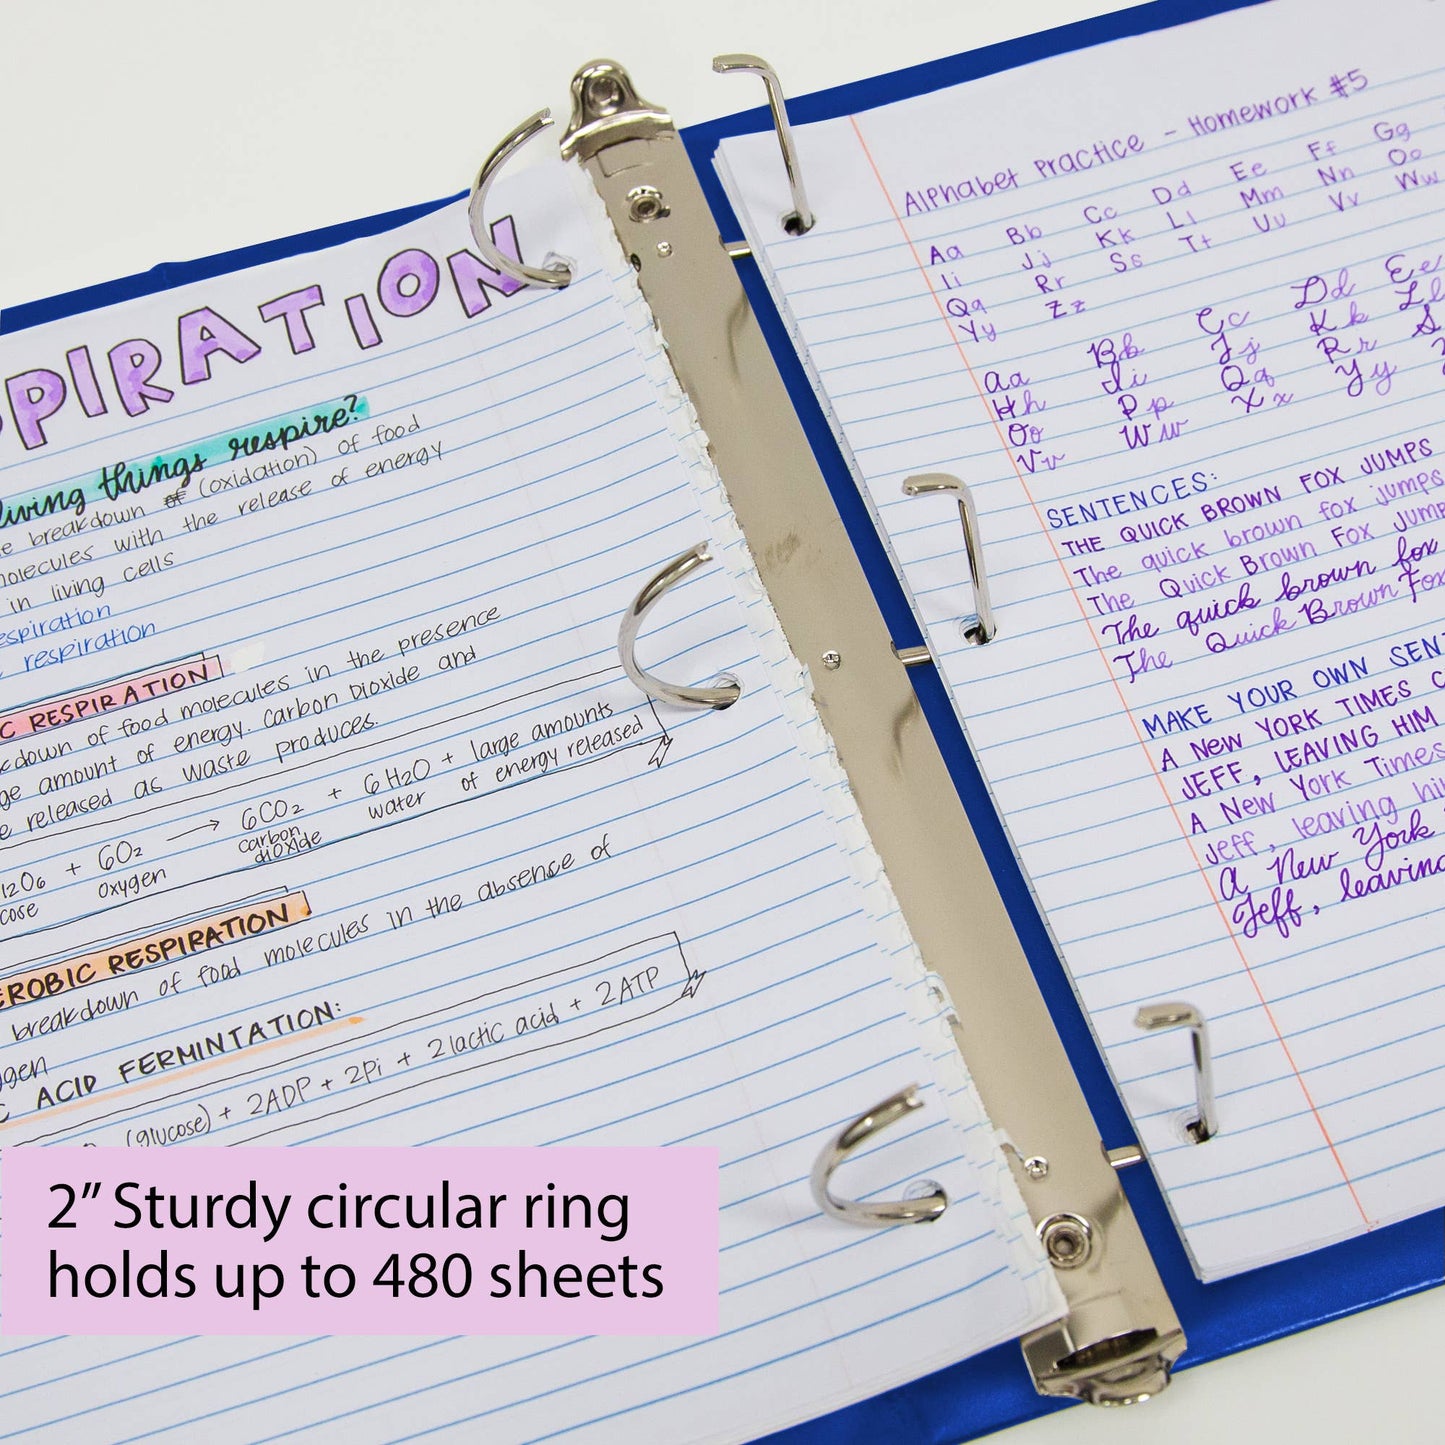 PIRATION
living things respire?
breakdown of (oxidation) of food
molecules with the release of energy
in living cells
respiration
respiration
C RESPIRATION
down of food molecules in the presence
amount of energy. Carbon Dioxide and
released as waste produces.
12O6 + 6O2 → 6CO2 + 6H2O + large amounts
cose oxygen carbon dioxide water of energy released
EROBIC RESPIRATION
breakdown of food molecules in the absense of
gen
C ACID FERMINTATION:
(glucose) + 2ADP + 2Pi + 2 lactic acid + 2ATP
2” Sturdy circular ring
holds up to 480 sheets
Alphabet Practice - Homework #5
Aa Bb Cc Dd Ee Ff Gg
Ii Jj Kk Ll Mm Nn Oo
Qq Rr Ss Tt Uu Vv Ww
Yy Zz
Aa Bb Cc Dd Ee
Hh Ii Jj Kk Ll
Oo Pp Qq Rr S
Vv Ww Xx Yy
SENTENCES:
THE QUICK BROWN FOX JUMPS
The quick brown fox jumps
The Quick Brown Fox Jump
The quick brown fox
The Quick Brown Fox
MAKE YOUR OWN SEN
A NEW YORK TIMES C
JEFF, LEAVING HIM
A New York Times
Jeff, leaving hi
A New York
Jeff, leaving